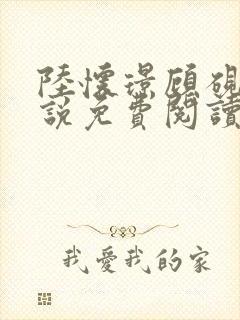 陸懷璟顧硯
說免費閱讀
我愛我的家